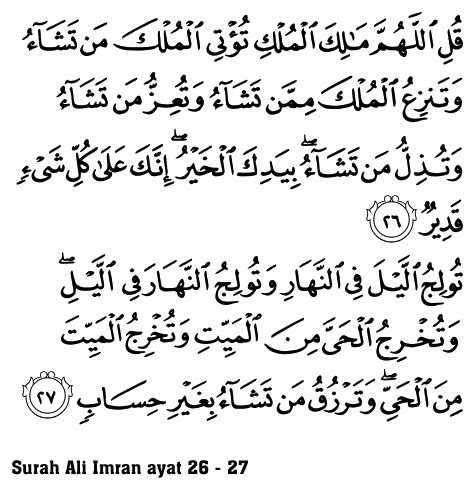 قُلِ ٱللَّهُمَّ مَٰلِكَ ٱلْمُلْكِ تُؤْتِى ٱلْمُلْكَ مَن تَشَآءُ
وَتَنزِعُ ٱلْمُلْكَ مِمَّن تَشَآءُ وَتُعِزُّ مَن تَشَآءُ
وَتُذِلُّ مَن تَشَآءُ ۖ بِيَدِكَ ٱلْخَيْرُ ۖ إِنَّكَ عَلَىٰ كُلِّ شَىْءٍ
قَدِيرٌ ٢٦
تُولِجُ ٱلَّيْلَ فِى ٱلنَّهَارِ وَتُولِجُ ٱلنَّهَارَ فِى ٱلَّيْلِ ۖ
وَتُخْرِجُ ٱلْحَىَّ مِنَ ٱلْمَيِّتِ وَتُخْرِجُ ٱلْمَيِّتَ
مِنَ ٱلْحَىِّ ۖ وَتَرْزُقُ مَن تَشَآءُ بِغَيْرِ حِسَابٍ ٢٧
Surah Ali Imran ayat 26 - 27